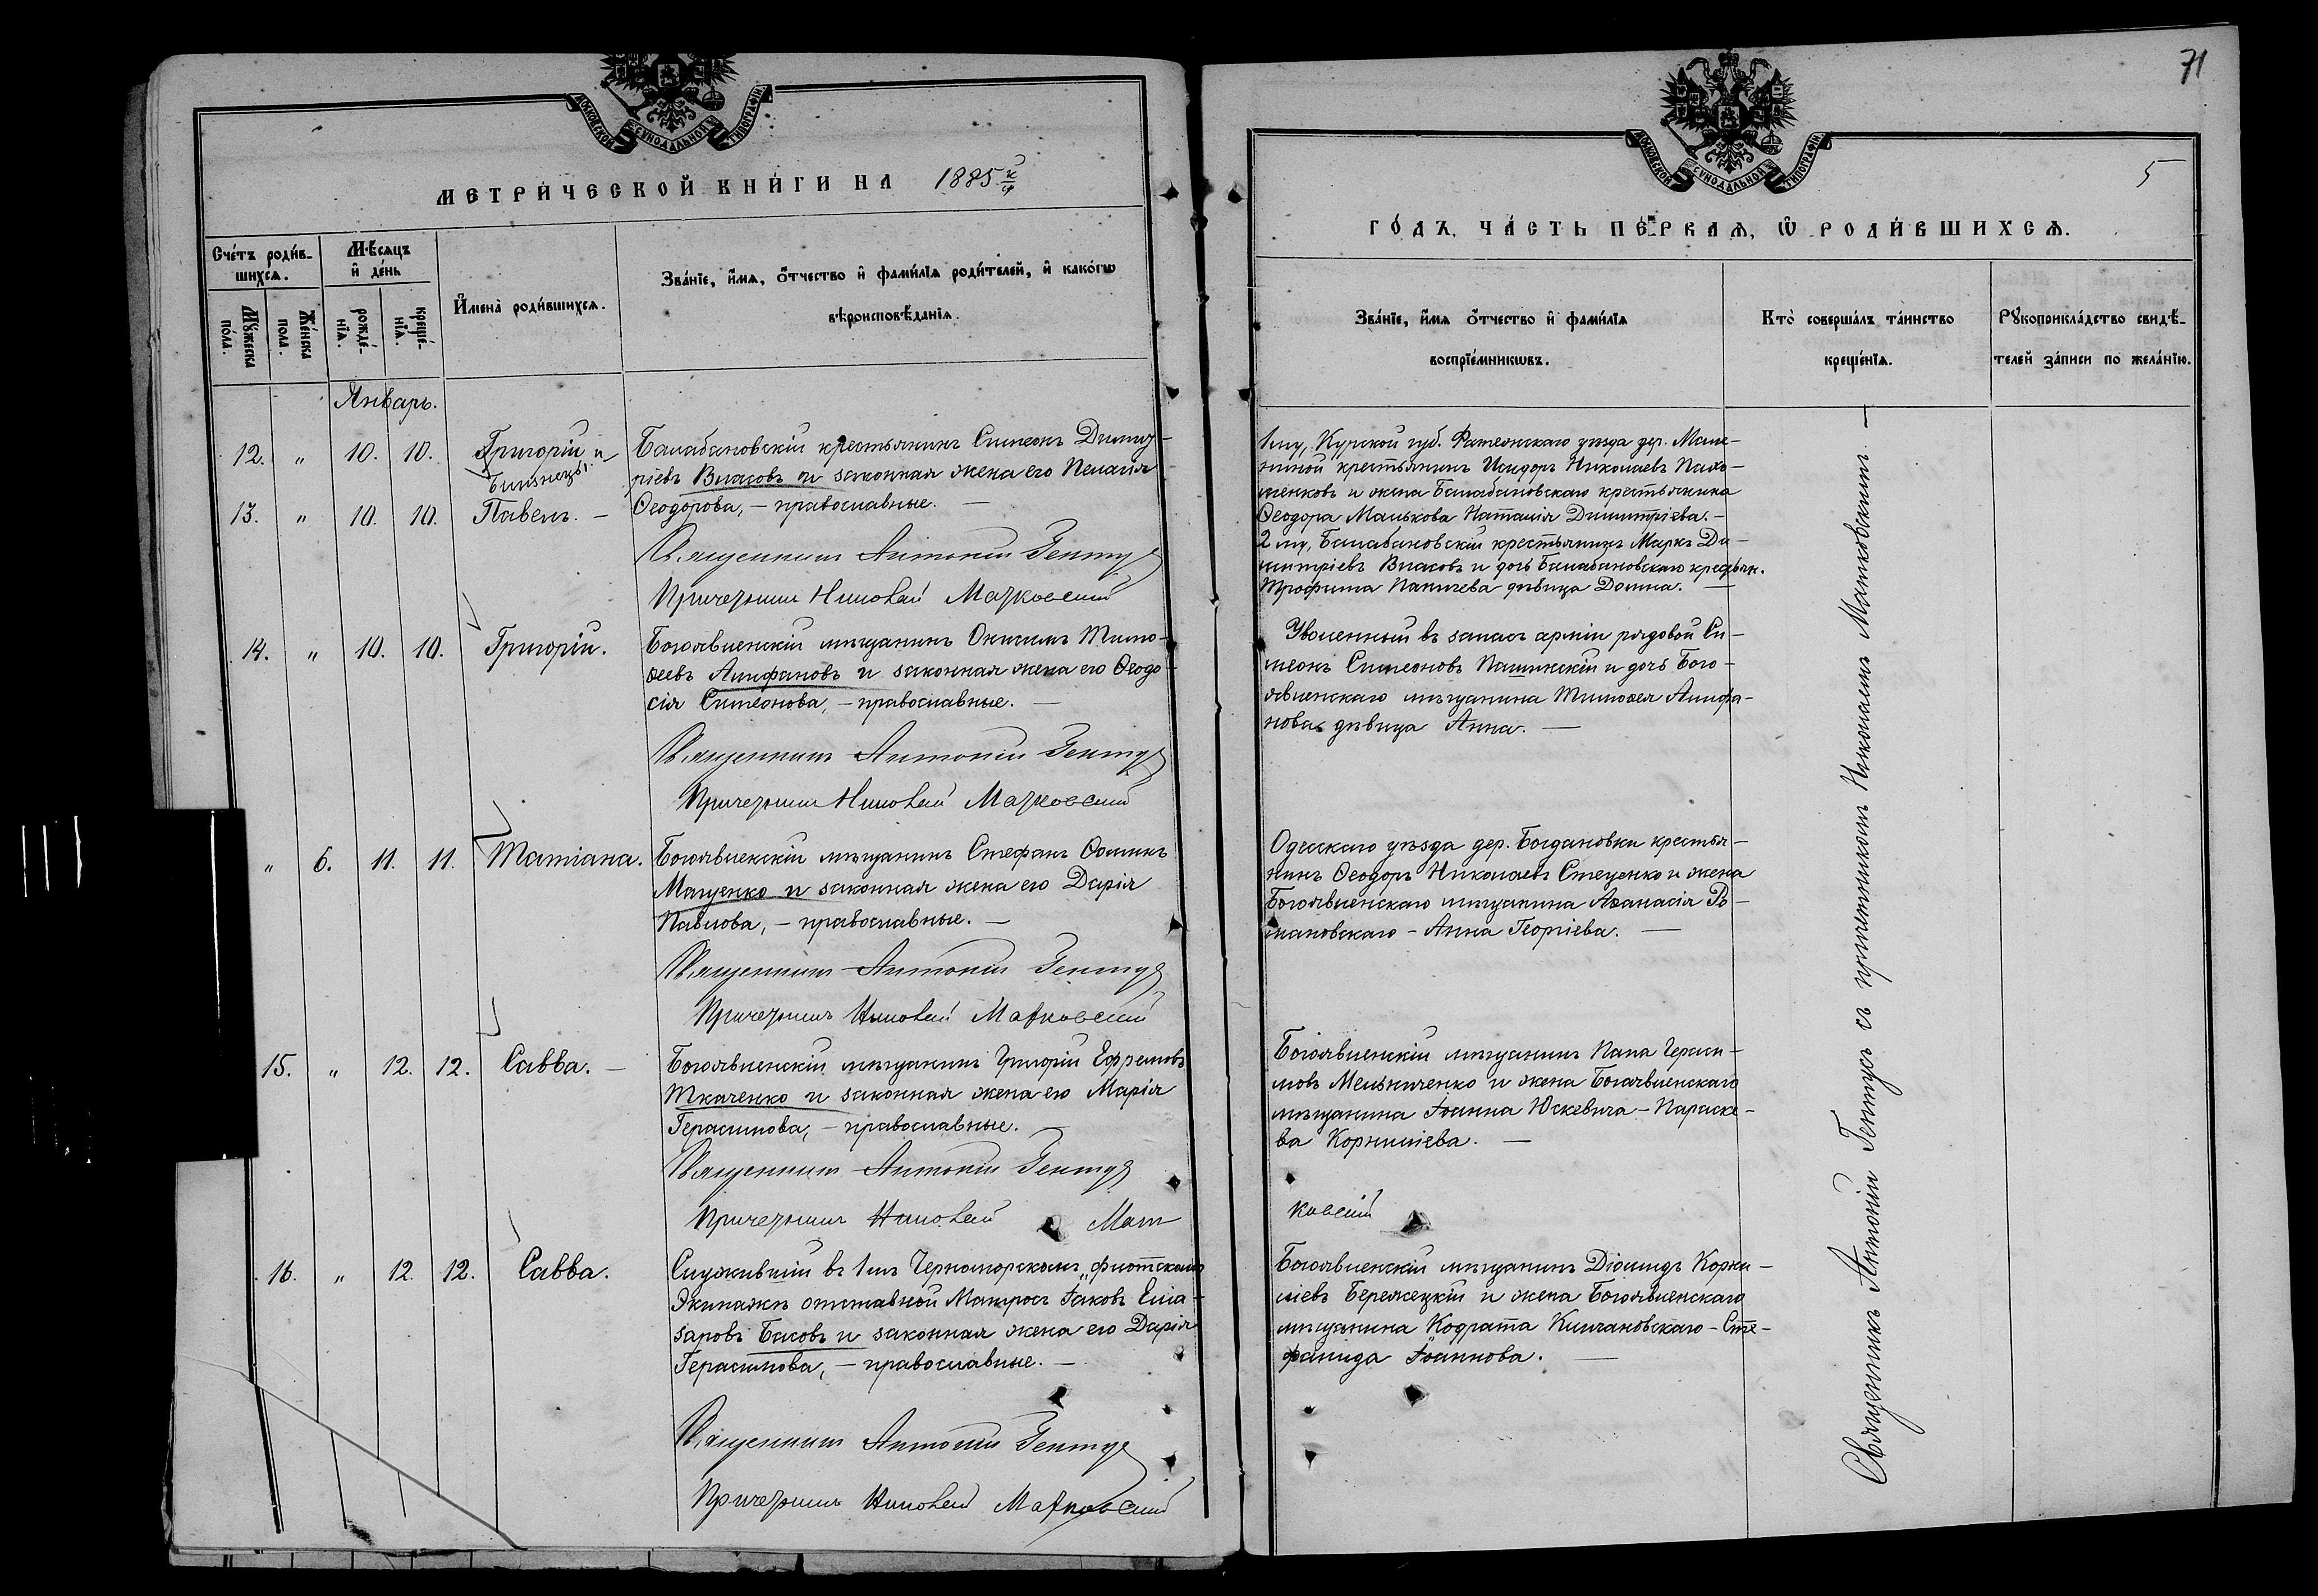 МОСКОВСКОЙ СѴНОДАЛЬНОЙ ТИПОГРАФІИ
МЕТРИ́ЧЕСКОЙ КНИ́ГИ НА 1885
Сче́тъ роди́в-
шихсѧ.
Мѣ́сѧцъ
и҆ де́нь
Мꙋ́жеска
по́ла.
Же́нска
пола.
рожде́-
нїѧ.
креще́-
нїѧ.
И҆мена̀ роди́вшихсѧ.
Зва́нїе, и҆́мѧ, ѻ҆́тчество и҆ фами́лїѧ роди́телей, и҆ како́гѡ
вѣроисповѣ́данїѧ.
Январь.
12. " 10. 10. Григорій и
Близнецы.
13. " 10. 10. Павелъ. —
Балабановскій крестьянинъ Симеонъ Димит-
ріевъ Власовъ и законная жена его Пелагія
Ѳеодорова, — православные. —
Священникъ Антоній Гентуд
Причетникъ Николай Матковскій
14. " 10. 10. Григорій.
Богоявленскій мѣщанинъ Онисимъ Тимо-
ѳеевъ Алифановъ и законная жена его Ѳеодо-
сія Симеонова, — православные. —
Священникъ Антоній
Причетникъ Николай Матковскій
" 6. 11. 11. Татіана.
Богоявленскій мѣщанинъ Стефанъ Ѳоминъ
Мащенко и законная жена его Дарія
Павлова, — православные. —
Священникъ Антоній
Причетникъ Николай Матковскій
15. " 12. 12. Савва. —
Богоявленскій мѣщанинъ Григорій Ефремовъ
Ткаченко и законная жена его Марія
Герасимова, — православные.
Священникъ Антоній
Причетникъ Николай Мат
16. " 12. 12. Савва.
Служившій въ 1мъ Черноморскомъ флотскомъ
Экипажѣ отставной Матросъ Іаковъ Ела-
заровъ Басовъ и законная жена его Дарія
Герасимова, — православные. —
Священникъ Антоній
Причетникъ Николай Матковскій
71
МОСКОВСКОЙ СѴНОДАЛЬНОЙ ТИПОГРАФІИ
5
ГО́ДЪ, ЧА́СТЬ ПЕ́РВАѦ, Ѡ҆ РОДИ́ВШИХСѦ.
Зва́нїе, и҆́мѧ ѻ҆́тчество и҆ фами́лїѧ
воспрїе́мникѡвъ.
Кто̀ соверша́лъ та́инство
креще́нїѧ.
Рꙋкоприкла́дство свидѣ́-
телей за́писи по жела́нїю.
1му, Курской губ. Фатежскаго уѣзда дер.
крестьянинъ Исидоръ Николаевъ Пахо-
менковъ и жена Балабановскаго крестьянина
Ѳеодора Малькова Наталія Димитріева. —
2му, Балабановскій крестьянинъ Маркъ Ди-
митріевъ Власовъ и дочь Балабановскаго крестьян.
Трофима Папичева дѣвица Домна. —
Уволенный въ запасъ арміи рядовой Си-
меонъ Симеоновъ Пашинскій и дочь Бого-
явленскаго мѣщанина Тимоѳея Алифа-
нова дѣвица Анна. —
Одесскаго уѣзда дер. Богдановки крестья-
нинъ Ѳеодоръ Николаевъ Стеценко и жена
Богоявленскаго мѣщанина Аѳанасія Ро-
мановскаго — Анна Георгіева. —
Богоявленскій мѣщанинъ Папа Гераси-
мовъ Мельниченко и жена Богоявленскаго
мѣщанина Іоанна Юскевича — Параске-
ва Корниліева. —
ковскій
Богоявленскій мѣщанинъ Діомидъ Корни-
ліевъ Бережецкій и жена Богоявленскаго
мѣщанина Кодрата Килчановскаго — Сте-
фанида Іоаннова. —
Священникъ Антоній съ причетникомъ Николаемъ Матковскимъ —